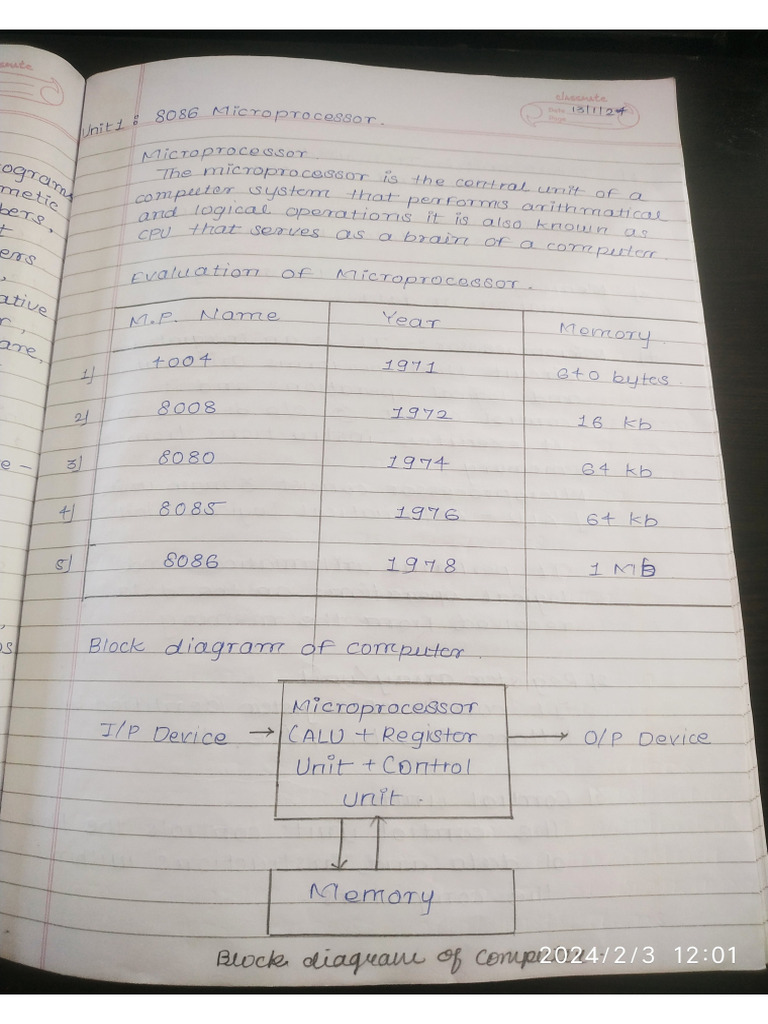 classmate
Date 13/1/24
Page
Unit 1 : 8086 Microprocessor.
Microprocessor.
The microprocessor is the central unit of a
computer system that performs arithmatical
and logical operations it is also known as
CPU that serves as a brain of a computer.
Evaluation of Microprocessor.
M.P. Name Year Memory
1) 4004 1971 640 bytes
2) 8008 1972 16 kb
3) 8080 1974 64 kb
4) 8085 1976 64 kb
5) 8086 1978 1 Mb
Block diagram of computer.
I/P Device → Microprocessor
(ALU + Registor → O/P Device
Unit + Control
unit.
Memory
Block diagram of
2024/2/3 12:01
ograms
metic
bers,
ers
ative
are,